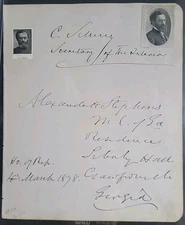 C. Schurz
Secretary of The Interior
Alexander H Stephens
M. C. of Ga
Residence
Liberty Hall
Ho. of Rep.
4 March 1878. Crawfordville
Georgia